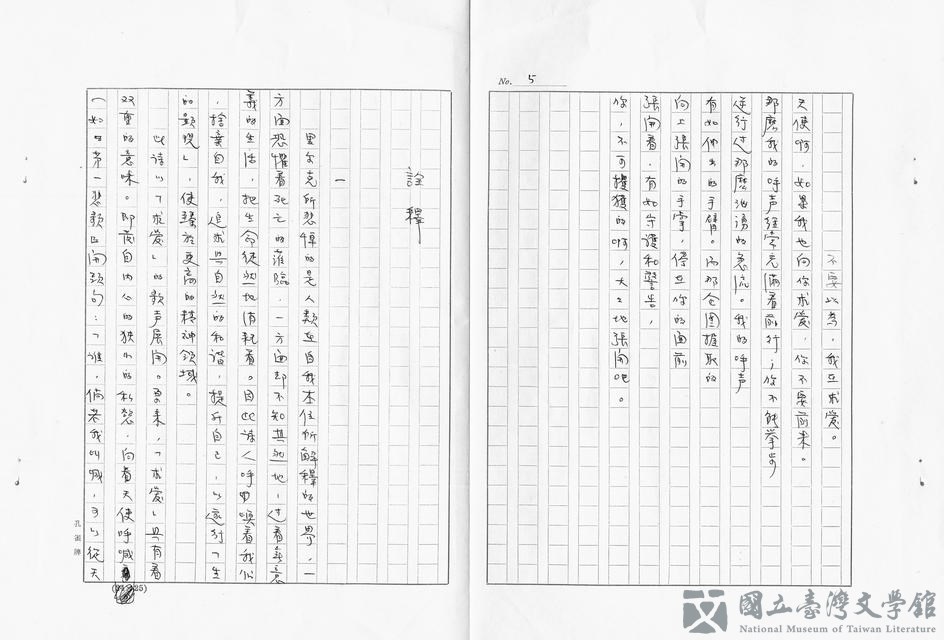 No. 5
不要以為，我在求愛。
天使啊，如果我也向你求愛，你不要前來。
那麼我的呼声經常充滿着前行；你不能举步
逆行过那麼汹湧的急流。我的呼声
有如伸出的手臂。而那企图握取的
向上張開的手掌，停在你的面前
張開着，有如守護和警告，
你，不可捉獲的啊，大大地張開吧。
詮釋
一
里尔克所悲悼的是人類在自我本位所解釋的世界，一
方面恐懼着死亡的准臨，一方面却不知其然地，过着無意
義的生活，把生命徒然地消耗着。因此诗人呼喚着我們
，捨棄自我，追求與自然的和諧，提升自己，以遂行「生
的顯現」，使臻於更高的精神領域。
此诗以「求愛」的歌声展開。原來，「求愛」具有着
双重的意味。即发自内心的狭小的私慾，向着天使呼喊
（如曰第一悲歌曰開頭句：「誰，倘若我叫喊，可以從天
孔雀牌
(24×25)
國立臺灣文學館
National Museum of Taiwan Literature